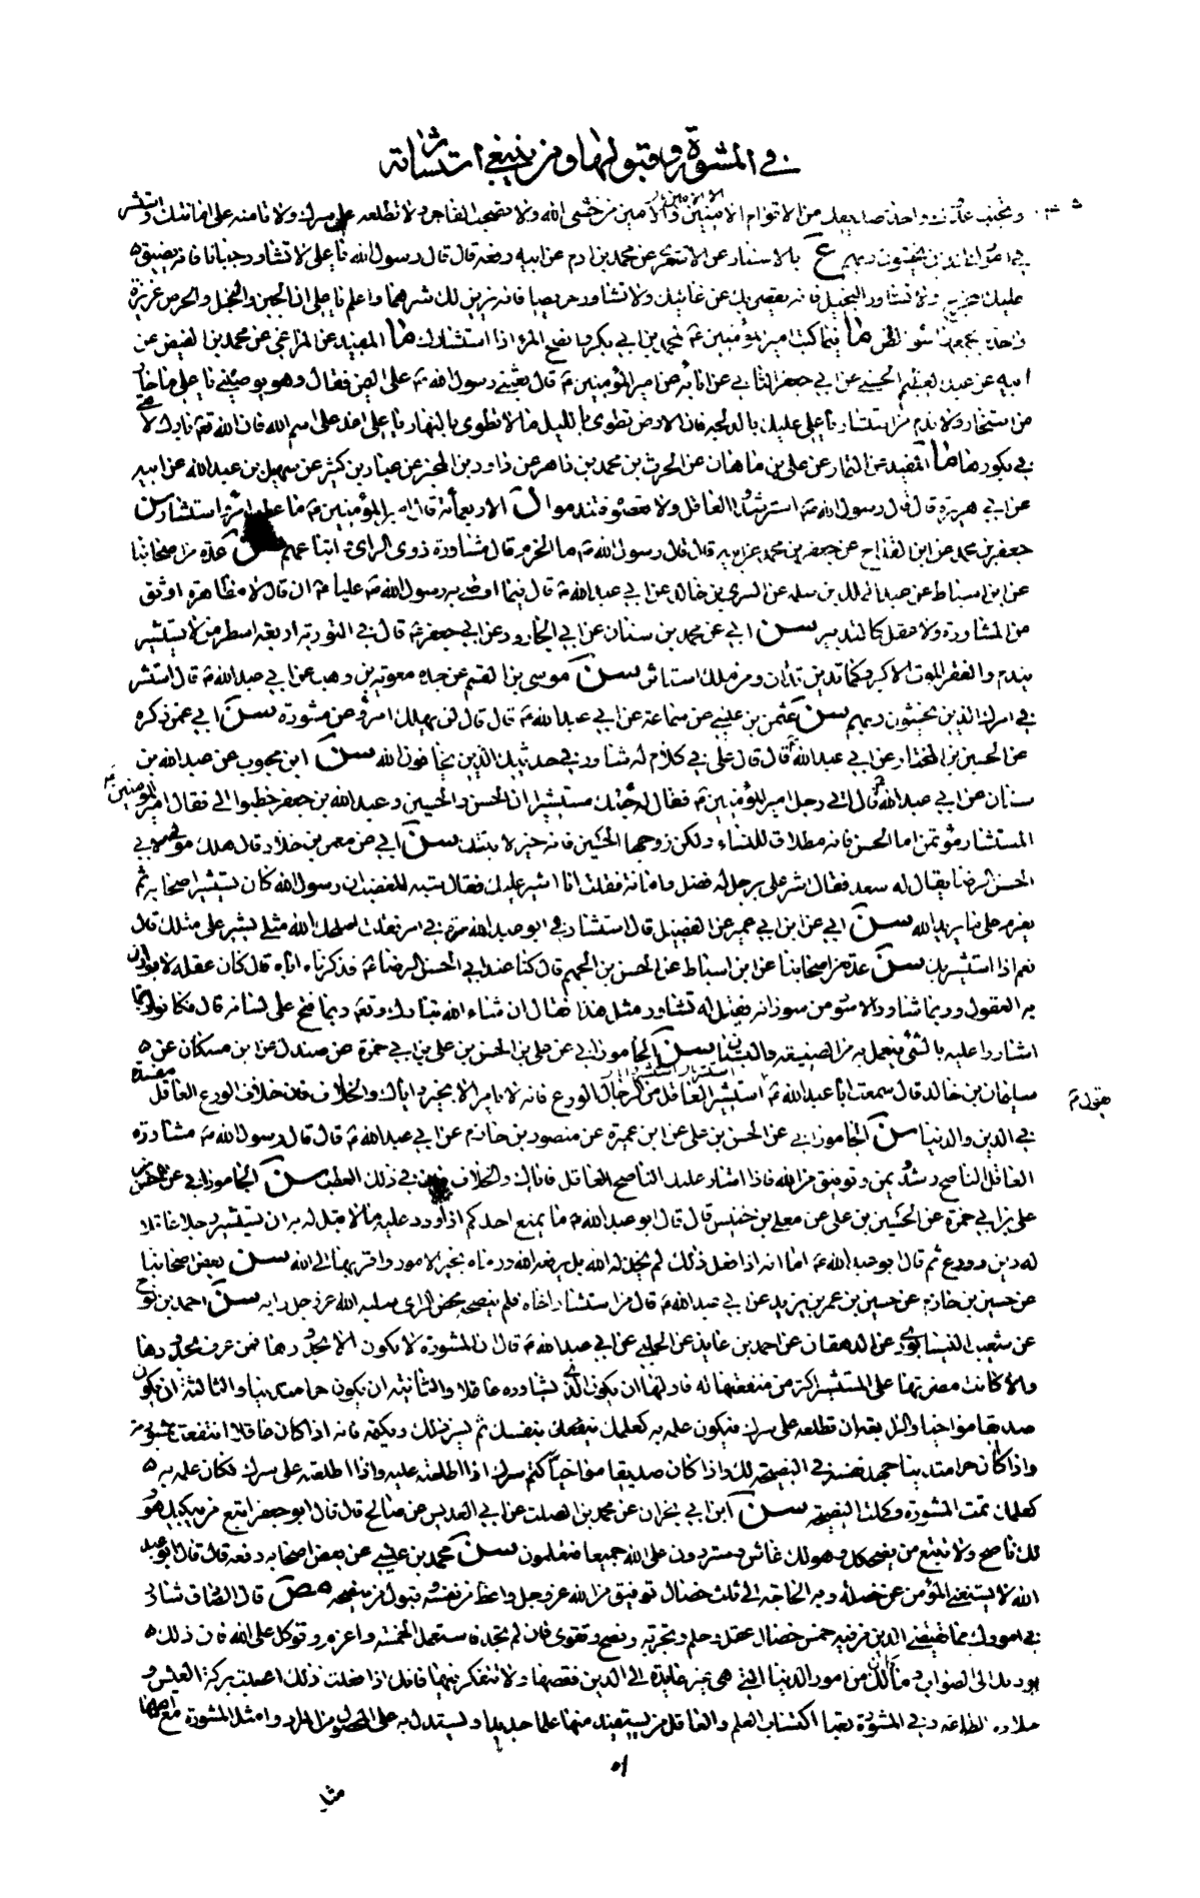 في المشورة وقبولها ومن ينبغي استشارته
وتجنب عدوك واحذر صديقك من الاقوام الا الامين والامين من خشى الله ولا تصحب الفاجر ولا تطلعه على سرك ولا تامنه على امانتك واستشر
في امورك الذين يخشون ربهم ع بالاسناد عن الاشعري عن محمد بن ادم عن ابيه رفعه قال قال رسول الله يا علي لا تشاور جبانا فانه يضيق
عليك المخرج ولا تشاور البخيل فانه يقصر بك عن غايتك ولا تشاور حريصا فانه يزين لك شرهما واعلم يا علي ان الجبن والبخل والحرص غريزة
واحدة يجمعها سوء الظن ما فيما كتب امير المؤمنين ع لمحمد بن ابي بكر وانصح المرء اذا استشارك ما المفيد عن المراغي عن محمد بن الفيض عن
ابيه عن عبد العظيم الحسني عن ابي جعفر الثاني عن ابائه عن امير المؤمنين ع قال بعثني رسول الله ص على اليمن فقال وهو يوصيني يا علي ما خار
من استخار ولا ندم من استشار يا علي عليك بالدلجة فان الارض تطوى بالليل ما لا تطوى بالنهار يا علي اغد على اسم الله فان الله تعالى بارك لامتي
في بكورها ما المفيد عن التمار عن علي بن ماهان عن الحرث بن محمد بن داهر عن داود بن المحبر عن عباد بن كثير عن سهيل بن عبد الله عن ابيه
عن ابي هريرة قال قال رسول الله ص استرشدوا العاقل ولا تعصوه فتندموا ل الاربعمأة قال امير المؤمنين ع ما عطب امرؤ استشار سن
جعفر بن محمد عن ابن القداح عن جعفر بن محمد عن ابيه قال قيل لرسول الله ص ما الحزم قال مشاورة ذوي الراي واتباعهم سن عدة من اصحابنا
عن ابن اسباط عن عبد الملك بن سلمة عن السري بن خالد عن ابي عبد الله ع قال فيما اوصى به رسول الله ص عليا ع ان قال لا مظاهرة اوثق
من المشاورة ولا عقل كالتدبير سن ابي عن محمد بن سنان عن ابي الجارود عن ابي جعفر ع قال في التورية اربعة اسطر من لا يستشير
يندم والفقر الموت الاكبر وكما تدين تدان ومن ملك استاثر سن موسى بن القسم عن جده معوية بن وهب عن ابي عبد الله ع قال استشر
في امرك الذين يخشون ربهم سن عثمن بن عيسى عن سماعة عن ابي عبد الله ع قال قال لن يهلك امرؤ عن مشورة سن ابي عمن ذكره
عن الحسين بن المختار عن ابي عبد الله قال قال علي في كلام له شاور في حديثك الذين يخافون الله سن ابن محبوب عن عبد الله بن
سنان عن ابي عبد الله ع قال اتى رجل امير المؤمنين ع فقال له جئتك مستشيرا ان الحسن والحسين وعبد الله بن جعفر خطبوا الي فقال امير المؤمنين ع
المستشار مؤتمن اما الحسن فانه مطلاق للنساء ولكن زوجها الحسين فانه خير لابنتك سن ابي عن معمر بن خلاد قال هلك مولى لابي
الحسن الرضا يقال له سعد فقال اشر علي برجل له فضل وامانة فقلت انا اشير عليك فقال شبه المغضب ان رسول الله كان يستشير اصحابه ثم
يعزم على ما يريد الله سن ابي عن ابن ابي عمير عن الفضيل قال استشارني ابو عبد الله مرة في امر فقلت اصلحك الله مثلي يشير على مثلك قال
نعم اذا استشيرتك سن عدة من اصحابنا عن ابن اسباط عن الحسن بن الجهم قال كنا عند ابي الحسن الرضا ع فذكرنا اباه قال كان عقله لا يوازن
به العقول وربما شاور الاسود من سودانه فقيل له تشاور مثل هذا فقال ان شاء الله تبارك وتعالى ربما فتح على لسانه قال فكانوا ربما
اشاروا عليه بالشئ فيعمل به من الضيعة والبستان سن الجاموراني عن علي بن الحسن بن علي بن ابي حمزة عن صندل عن ابن مسكان عن
سليمان بن خالد قال سمعت ابا عبد الله ع يقول استشير العاقل من الرجال الورع فانه لا يامر الا بخير واياك والخلاف فان خلاف الورع العاقل مفسدة
في الدين والدنيا سن الجاموراني عن الحسن بن علي عن ابن عميرة عن منصور بن حازم عن ابي عبد الله ع قال قال رسول الله ص مشاورة
العاقل الناصح رشد ويمن وتوفيق من الله فاذا اشار عليك الناصح العاقل فاياك والخلاف فان في ذلك العطب سن الجاموراني عن الحسن بن
علي بن ابي حمزة عن الحسين بن علي عن معلى بن خنيس قال قال ابو عبد الله ع ما يمنع احدكم اذا ورد عليه ما لا قبل له به ان يستشير رجلا عاقلا
له دين وورع ثم قال ابو عبد الله ع اما انه اذا فعل ذلك لم يخذله الله بل يرفعه الله ورماه بخير الامور واقربها الى الله سن بعض اصحابنا
عن حسين بن حازم عن حسين بن عمر بن يزيد عن ابي عبد الله ع قال من استشار اخاه فلم ينصحه محض الراي سلبه الله عز وجل رايه سن احمد بن نوح
عن شعيب النيسابوري عن الدهقان عن احمد بن عايذ عن الحلبي عن ابي عبد الله ع قال ان المشورة لا يكون الا بحدودها فمن عرف بحدودها
والا كانت مضرتها على المستشير اكثر من منفعتها له فاولها ان يكون الذي يشاوره عاقلا والثانية ان يكون حرا متدينا والثالثة ان يكون
صديقا مواخيا والرابعة ان تطلعه على سرك فيكون علمه به كعلمك بنفسك ثم يسر ذلك ويكتمه فانه اذا كان عاقلا انتفعت بمشورته
واذا كان حرا متدينا جهد نفسه في النصيحة لك واذا كان صديقا مواخيا كتم سرك اذا اطلعته عليه واذا اطلعته على سرك فكان علمه به
كعلمك تمت المشورة وكملت النصيحة سن ابن ابي نجران عن محمد بن الصلت عن ابي العديس عن صالح قال قال ابو جعفر اتبع من يبكيك وهو
لك ناصح ولا تتبع من يضحكك وهو لك غاش وستردون على الله جميعا فتعلمون سن محمد بن عيسى عن بعض اصحابه رفعه قال قال ابو عبد
الله لا يستغني المؤمن عن خصلة وبه الحاجة الى ثلث خصال توفيق من الله عز وجل وواعظ من نفسه وقبول من ينصحه مص قال الصادق شاور
في امورك مما يقتضي الدين من فيه خمس خصال عقل وحلم وتجربة ونصح وتقوى فان لم تجد فاستعمل الخمسة واعزم وتوكل على الله فان ذلك
يوديك الى الصواب وما كان من امور الدنيا التي هي غير عايدة الى الدين فاقضها ولا تتفكر فيها فانك اذا فعلت ذلك اصبت بركة العيش و
حلاوة الطاعة وفي المشورة تعبا اكتساب العلم والعاقل من يستفيد منها علما جديدا ويستدل به على المحصول من المراد وامثل المشورة مع اهلها
٥١
مثل